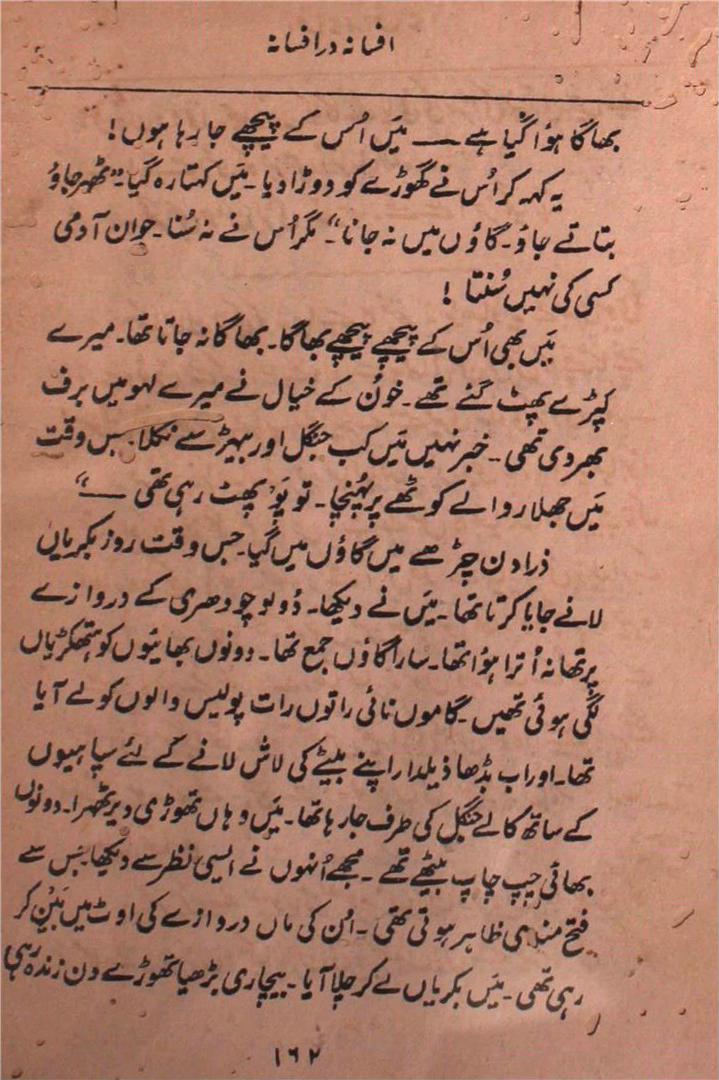 افسانہ در افسانہ
بھاگا ہوُا گیا ہے —— مَیں اُس کے پیچھے جا رہا ہوں!
یہ کہہ کر اُس نے گھوڑے کو دوڑا دیا۔ مَیں کہتا رہ گیا۔ "ٹھہر جاؤ
بتاتے جاؤ۔ گاؤں میں نہ جانا"۔ مگر اُس نے نہ سُنا۔ جوان آدمی
کسی کی نہیں سُنتا !
مَیں بھی اُس کے پیچھے پیچھے بھاگا۔ بھاگا نہ جاتا تھا۔ میرے
کپڑے پھٹ گئے تھے۔ خوُن کے خیال نے میرے لہو میں برف
بھر دی تھی۔ خبر نہیں مَیں کب جنگل اور بیہڑ سے نکلا۔ جس وقت
مَیں جھلار والے کوٹھے پر پہُنچا۔ تو پَو پھٹ رہی تھی ——"
ذرا دن چڑھے میں گاؤں میں گیا۔ جس وقت روز بکریاں
لانے جایا کرتا تھا۔ مَیں نے دیکھا۔ دُولو چودھری کے دروازے
پر تھانہ اُترا ہوُا تھا۔ سارا گاؤں جمع تھا۔ دونوں بھائیوں کو ہتھکڑیاں
لگی ہوئی تھیں۔ گاموں نائی راتوں رات پولیس والوں کو لے آیا
تھا۔ اور اب بڈھا ذیلدار اپنے بیٹے کی لاش لانے کے لئے سپاہیوں
کے ساتھ کالے جنگل کی طرف جا رہا تھا۔ مَیں وہاں تھوڑی دیر ٹھہرا۔ دونوں
بھائی چپ چاپ بیٹھے تھے۔ مجھے اُنہوں نے ایسی نظر سے دیکھا جس سے
فتح مندی ظاہر ہوتی تھی۔ اُن کی ماں دروازے کی اوٹ میں بَین کر
رہی تھی۔ مَیں بکریاں لے کر چلا آیا۔ بیچاری بڑھیا تھوڑے دن زندہ رہی
۱۶۲